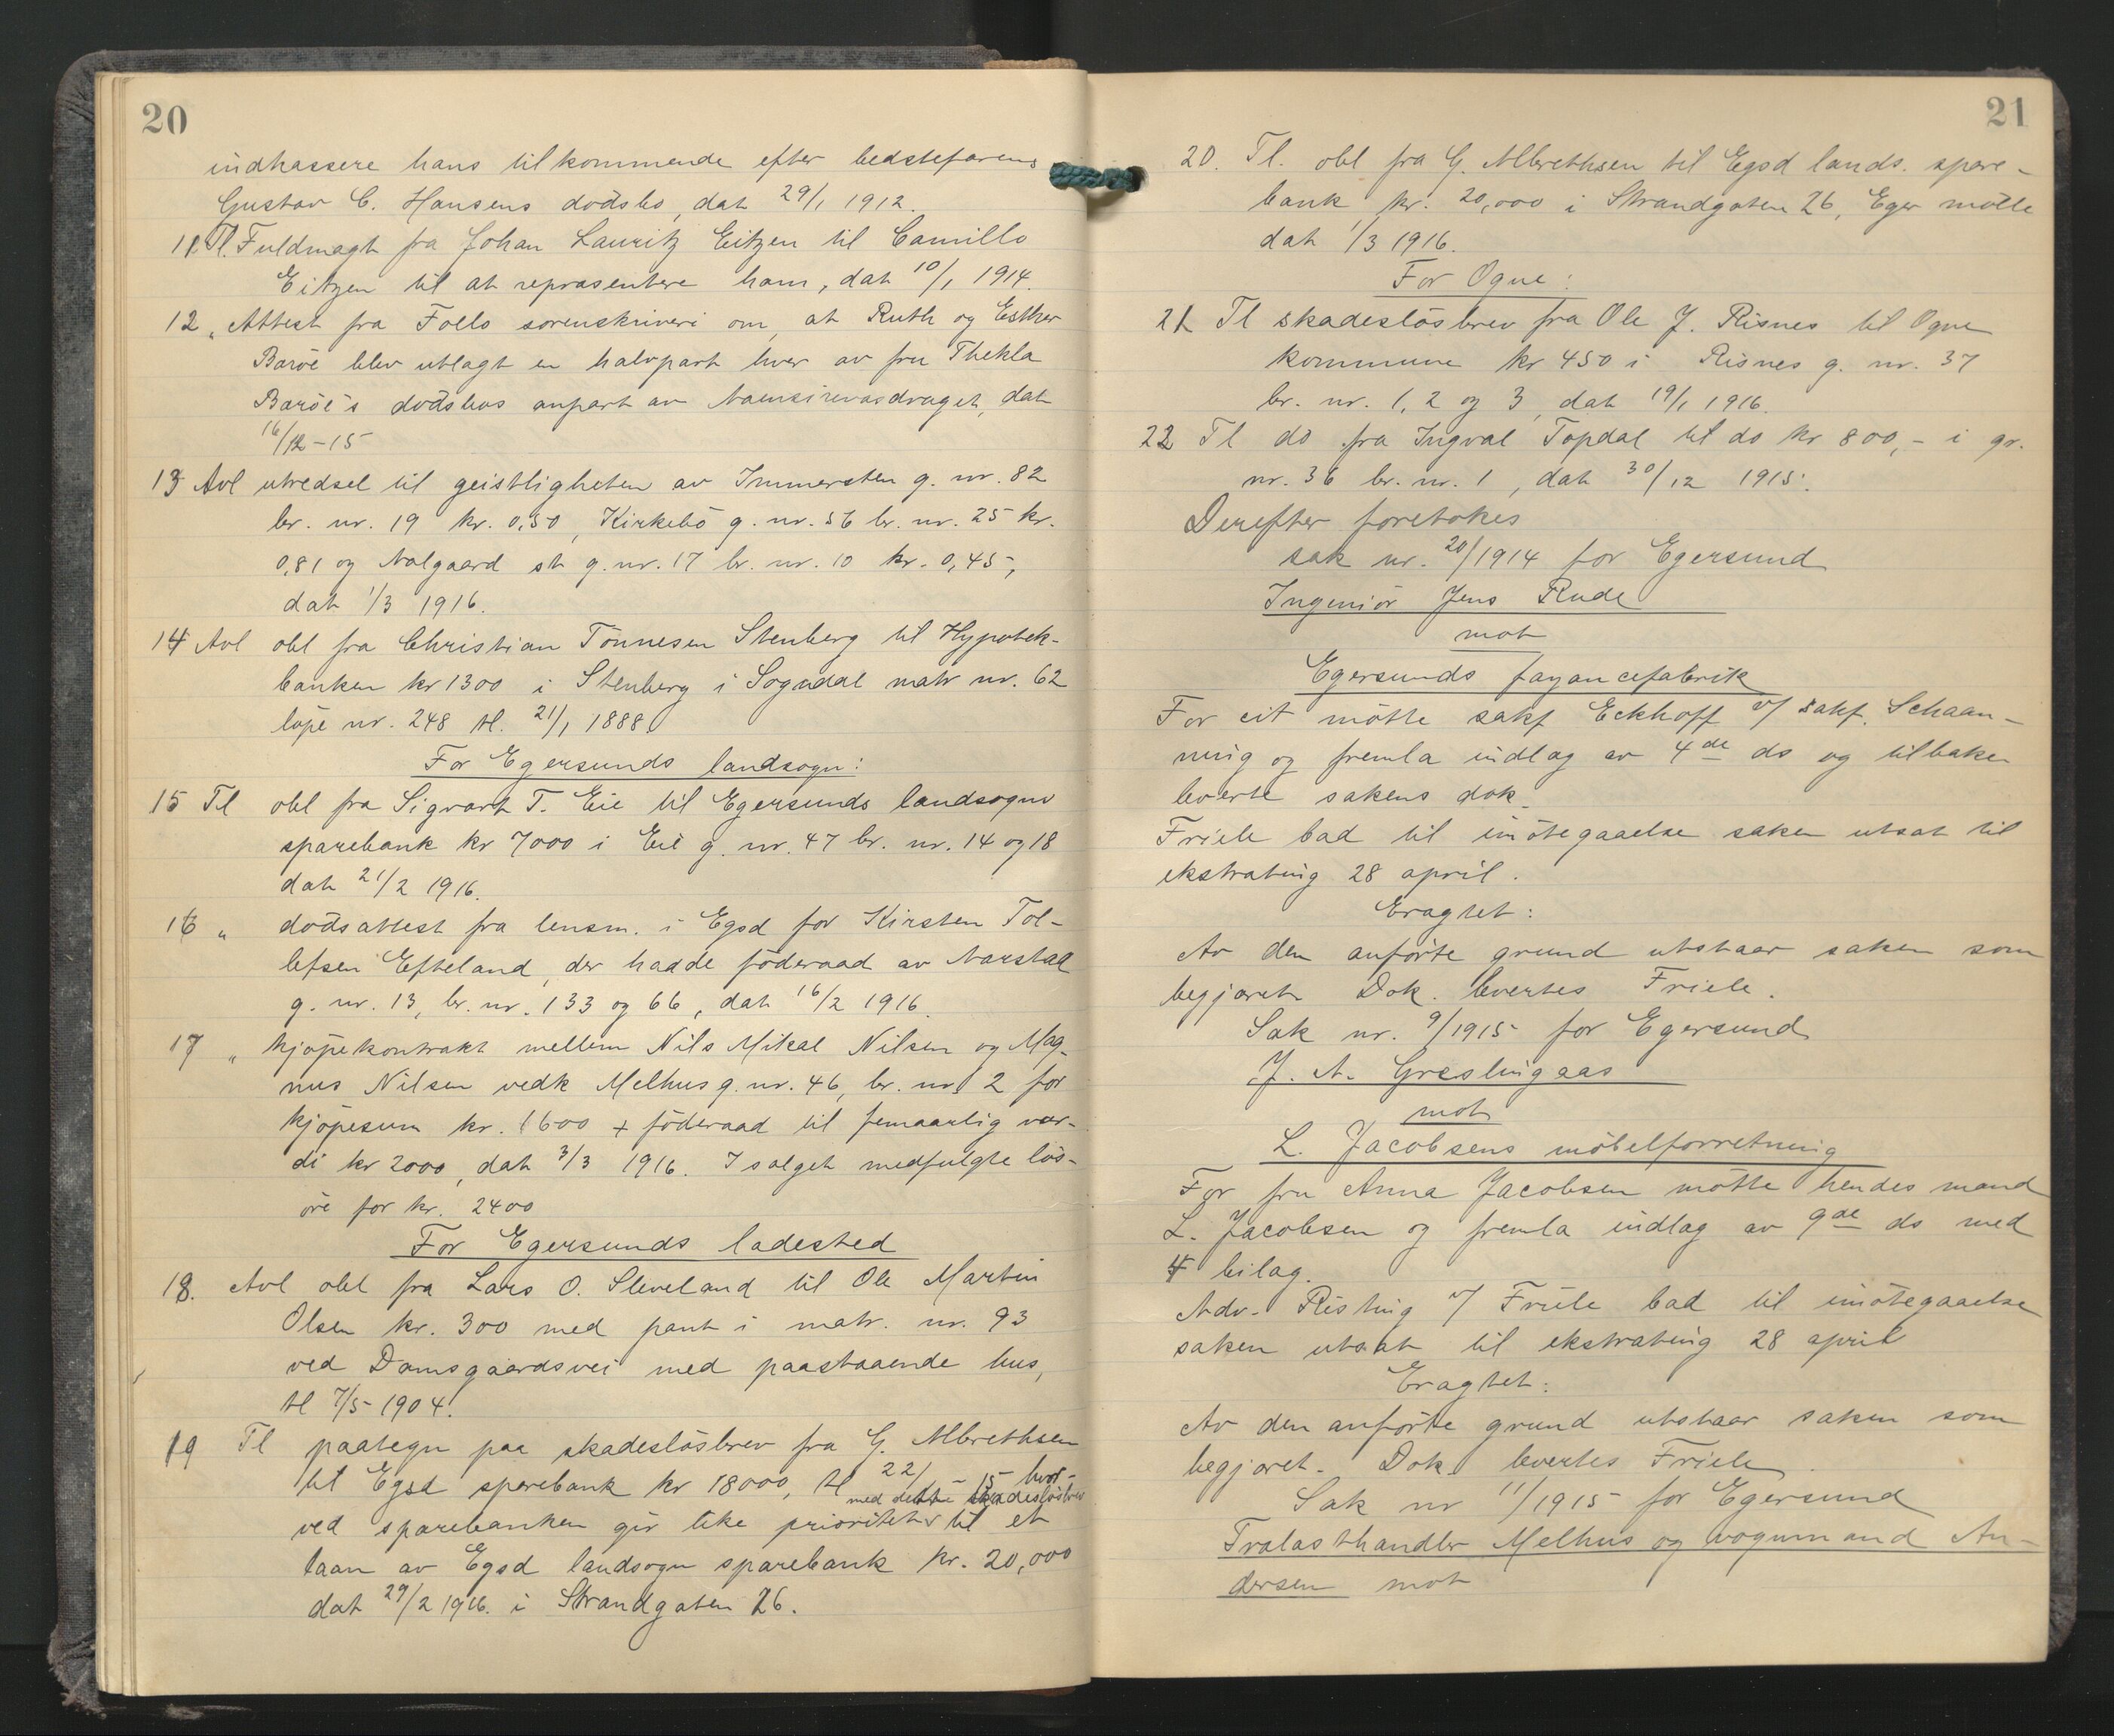 20
indkassere hans tilkommende efter bedstefarens
Gustav C. Hansens dødsbo, dat 29/1 1912.
11. Tl. Fuldmagt fra Johan Lauritz Eitzen til Camillo
Eitzen til at repræsentere ham, dat 10/1 1914.
12 „ Attest fra Follo sorenskriveri om, at Ruth og Esther
Barøe blev utlagt en halvpart hver av fru Thekla
Barøe's dødsbos anpart av vasdraget, dat
16/12-15
13 Avl utredsel til geistligheten av Immersten g. nr. 82
br. nr. 19 kr. 0,50, Kirkebø g. nr. 56 br. nr. 25 kr.
0,81 og Aalgaard st g. nr. 17 br. nr. 10 kr. 0,45,
dat 1/3 1916.
14 Avl obl fra Christian Tønnesen Stenberg til Hypotek-
banken kr 1300 i Stenberg i Sogndal matr nr. 62
løpe nr. 248 tl. 21/1 1888.
For Egersunds landsogn:
15 Tl obl fra Sigvart T. Eie til Egersunds landsogns
sparebank kr 7000 i Eie g. nr. 47 br. nr. 14 og 18
dat 21/2 1916.
16 „ dødsattest fra lensm. i Egsd for Kirsten Tol-
lefsen Efteland, der hadde føderaad av Aarstad
g. nr. 13, br. nr. 133 og 66, dat 16/2 1916.
17 „ kjøpekontrakt mellem Nils Mikal Nilsen og Mag-
nus Nilsen vedk Melhus g. nr. 46, br. nr 2 for
kjøpesum kr. 1600 + føderaad til femaarlig vær-
di kr 2000, dat 3/3 1916. I salget medfulgte løs-
øre for kr. 2400
For Egersunds ladested
18. Avl obl fra Lars O. Sleveland til Ole Martin
Olsen kr. 300 med pant i matr. nr. 93
ved Damsgaardsvei med paastaaende hus,
tl 7/5 1904.
19 Tl paategn paa skadesløsbrev fra G. Albrethsen
til Egsd sparebank kr 18000, tl 22/ - 15 hvor-
med dette skadesløsbrev
ved sparebanken gir like prioritet til et
laan av Egsd landsogn sparebank kr. 20,000
dat 29/2 1916. i Strandgaten 26.
21
20. Tl. obl fra G. Albrethsen til Egsd lands. spare-
bank kr. 20,000 i Strandgaten 26, Eger møtte
dat 1/3 1916.
For Ogne:
21 Tl skadesløsbrev fra Ole J. Risnes til Ogne
kommune kr 450 i Risnes g. nr. 37
br. nr. 1, 2 og 3, dat 19/1 1916.
22 Tl do fra Ingval Topdal til do kr 800,- i gr.
nr. 36 br. nr. 1, dat 30/12 1915.
Derefter foretokes
sak nr. 20/1914 for Egersund
Ingeniør Jens Rude
mot
Egersunds fayancefabrik
For cit møtte sakf Eckhoff v/ sakf. Schaan-
ning og fremla indlæg av 4de ds og tilbake
leverte sakens dok.
Friele bad til imøtegaaelse saken utsat til
ekstrating 28 april.
Eragtet:
Av den anførte grund utstaar saken som
begjæret. Dok. levertes Friele.
Sak nr. 9/1915 for Egersund
J. A. Gresslingaas
mot
L. Jacobsens møbelforretning
For fru Anna Jacobsen møtte hendes mand
L. Jacobsen og fremla indlæg av 9de ds med
4 bilag.
Adv. Risting v/ Friele bad til imøtegaaelse
saken utsat til ekstrating 28 april
Eragtet:
Av den anførte grund utstaar saken som
begjæret. Dok. levertes Friele.
Sak nr 11/1915 for Egersund
Trælasthandler Melhus og vognmand An-
dersen mot